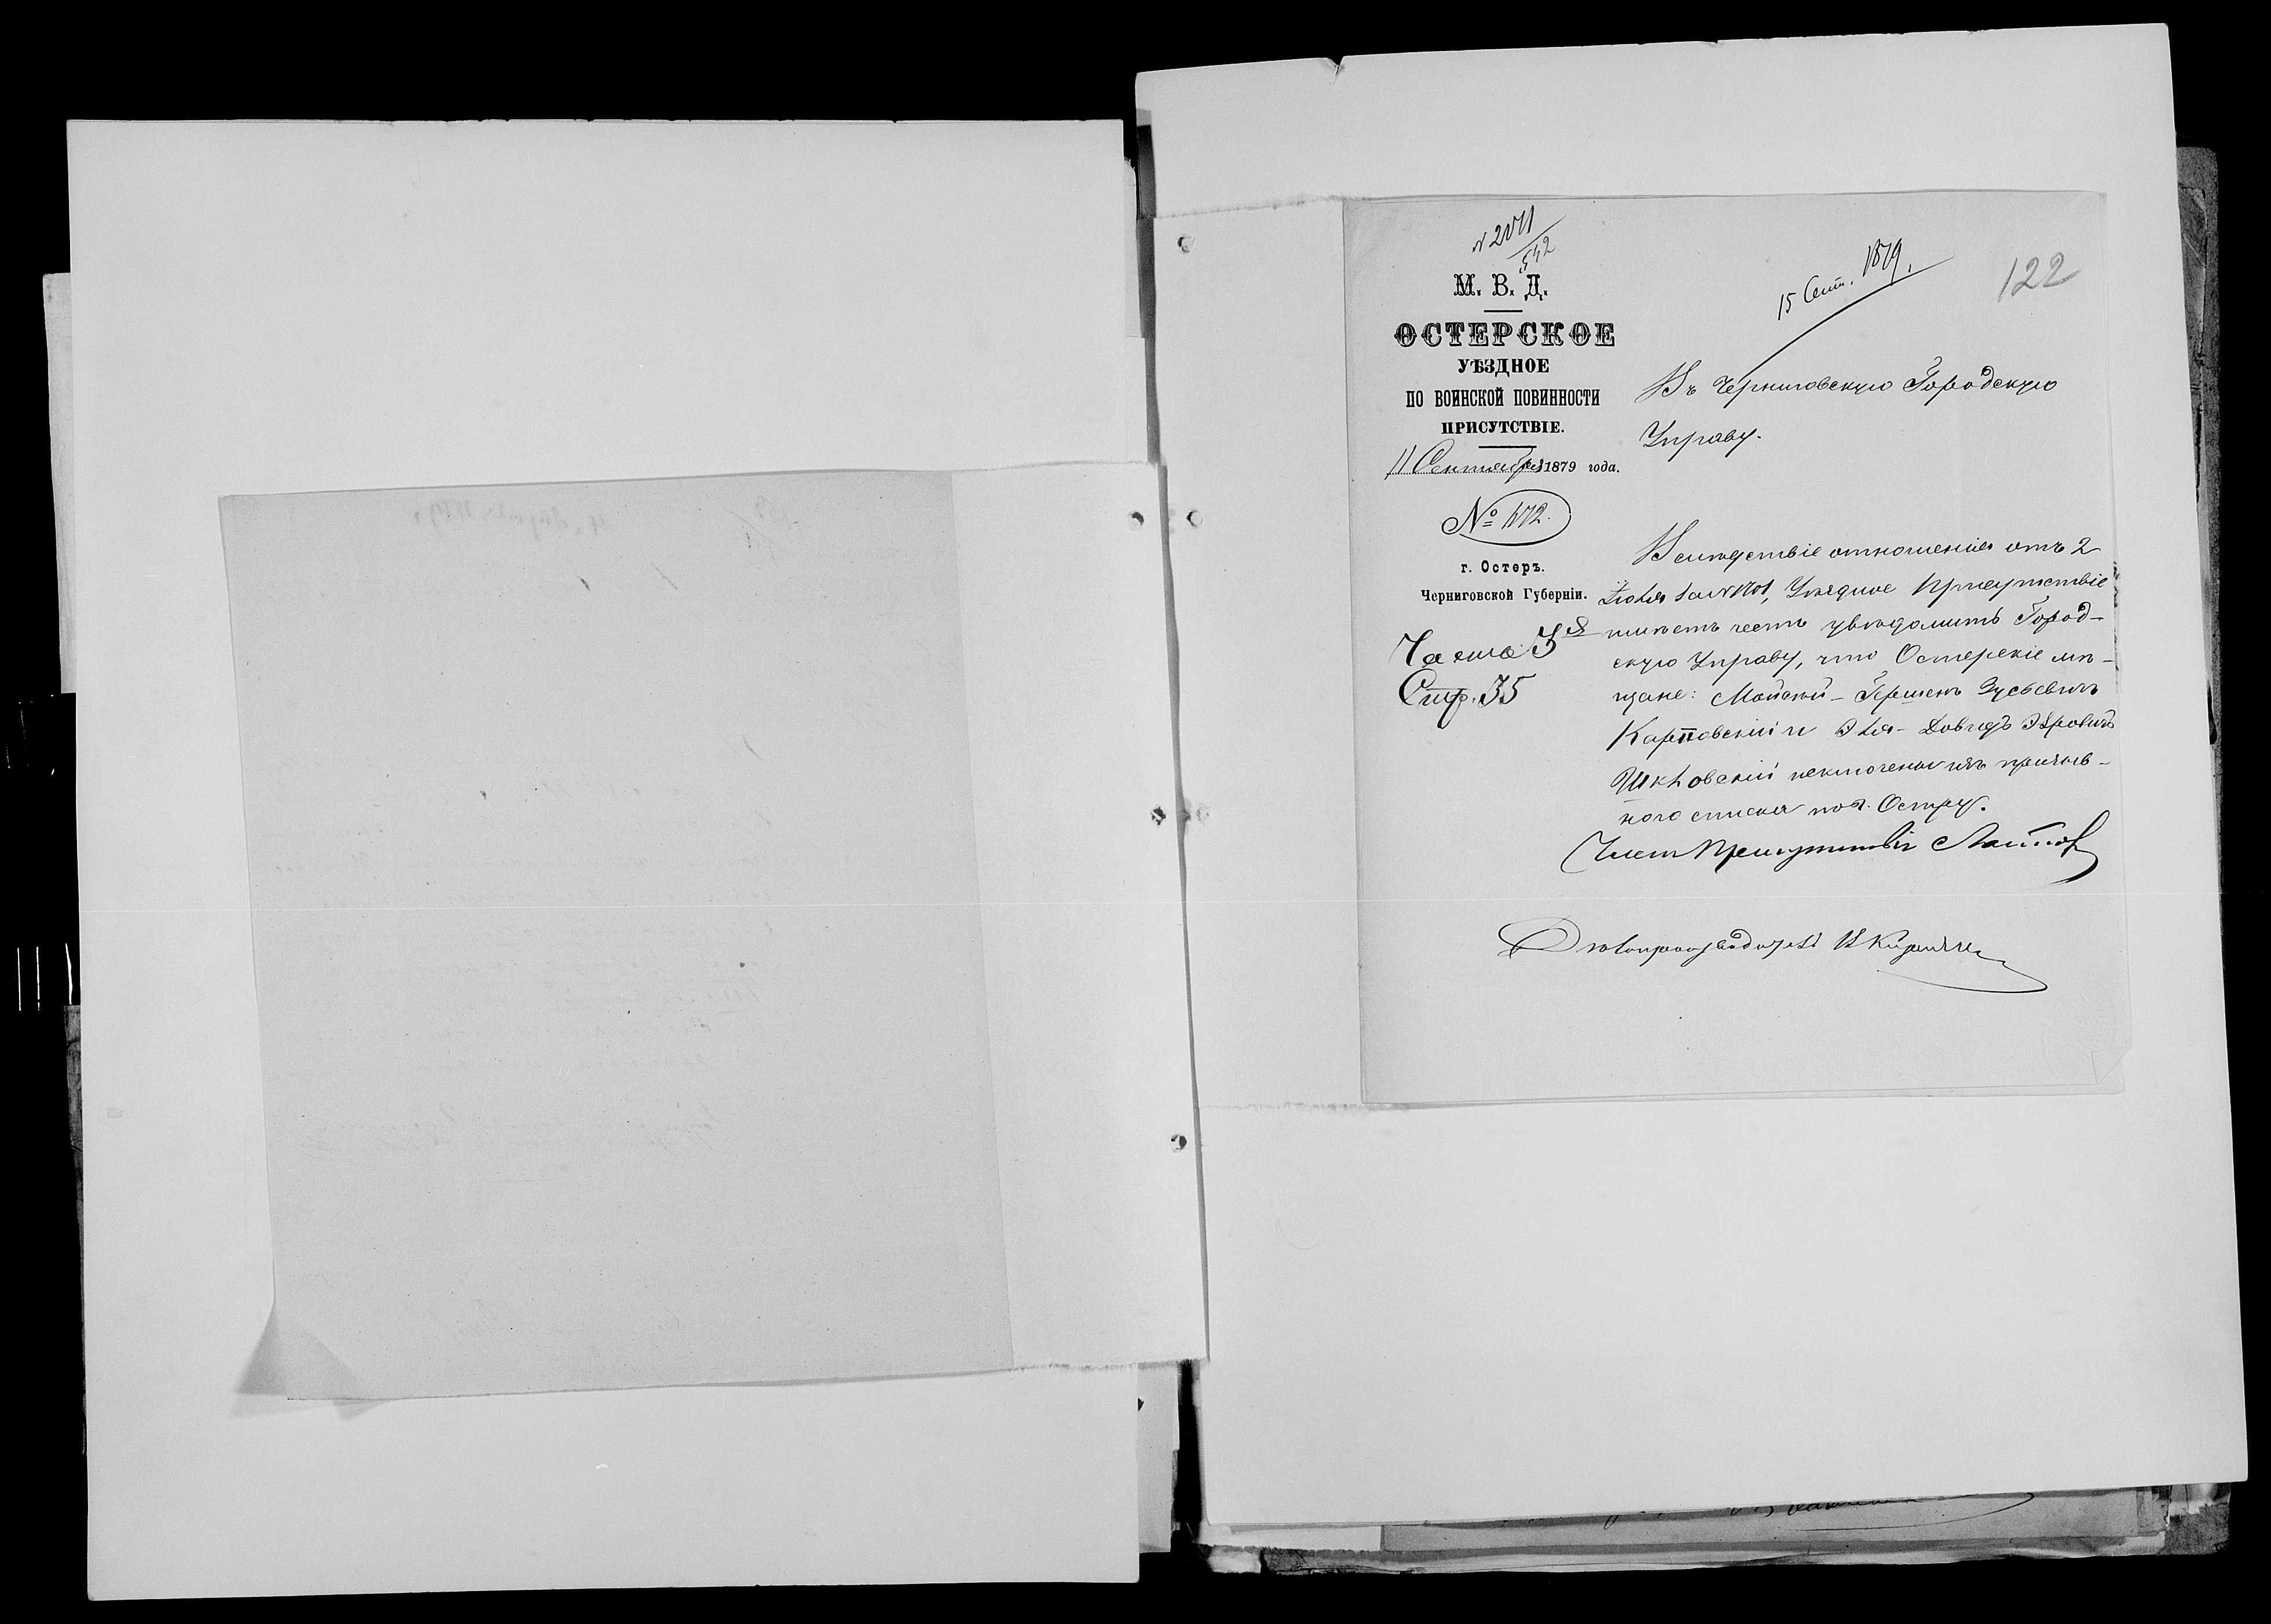 № 2071
542
15 Сент. 1879.
122
М. В. Д.
ОСТЕРСКОЕ
УѢЗДНОЕ
ПО ВОИНСКОЙ ПОВИННОСТИ
ПРИСУТСТВІЕ.
11 Сентября 1879 года.
№ 1172.
г. Остеръ.
Черниговской Губерніи.
Часть 3я
Стр. 35
Въ Черниговскую Городскую
Управу.
Вслѣдствіе отношенія отъ 2
Іюля за № 1701, Уѣздное Присутствіе
имѣетъ честь увѣдомить Город-
скую Управу, что Остерскіе мѣ-
щане: Гершенъ Зусьевичъ
Карповскій и Эля-Довидъ
исключены изъ призыв-
ного списка по г. Остру.
Членъ Присутствія
Дѣлопроизводитель